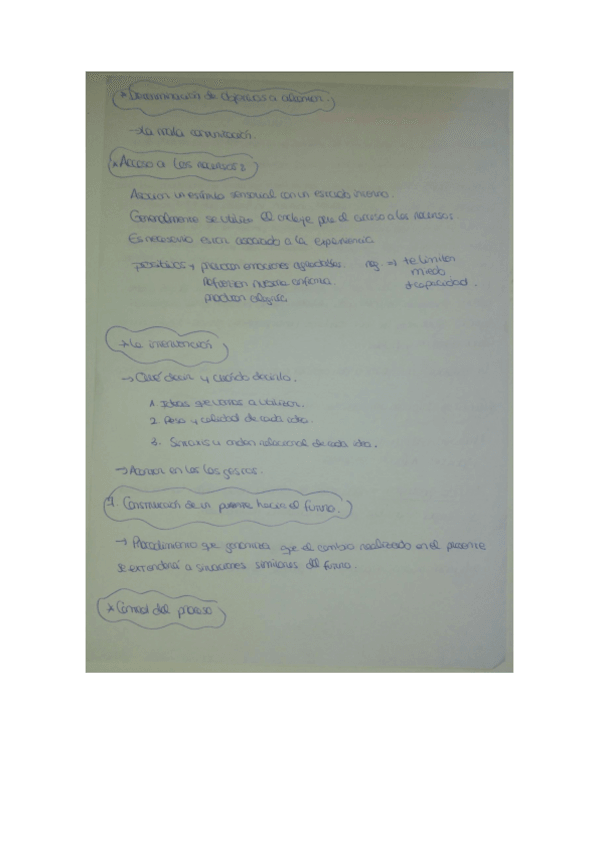 * Determinación de objetivos a alcanzar.
→ La mala comunicación.
* Acceso a los recursos:
Asociar un estímulo sensorial con un estado interno.
Generalmente se utiliza el anclaje para el acceso a los recursos
Es necesario estar asociado a la experiencia
positivos → provocan emociones agradables. neg. => te limitan
Refuerzan nuestra miedo
producen alegría capacidad.
* La intervención
→ Qué decir y cuándo decirlo.
1. Ideas que vamos a utilizar.
2. Peso y calidad de cada idea.
3. Sintaxis u orden relacional de cada idea.
→ en los gestos.
7. Construcción de un puente hacia el futuro.
→ Procedimiento que garantiza que el cambio realizado en el presente
se extenderá a situaciones similares del futuro.
* Control del proceso